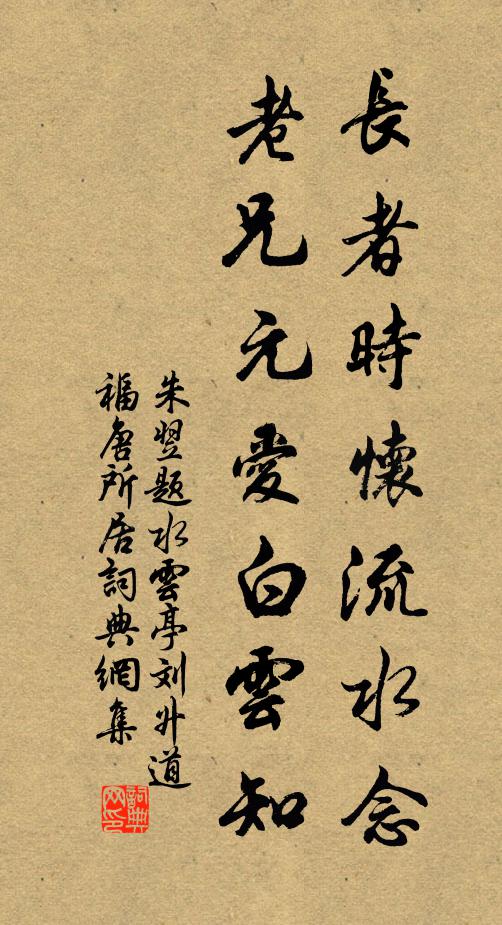 長者時懷流水念
老兄元愛白雲知
朱翌題水雲亭刘外道
福唐所居詞典網集
詞典网印